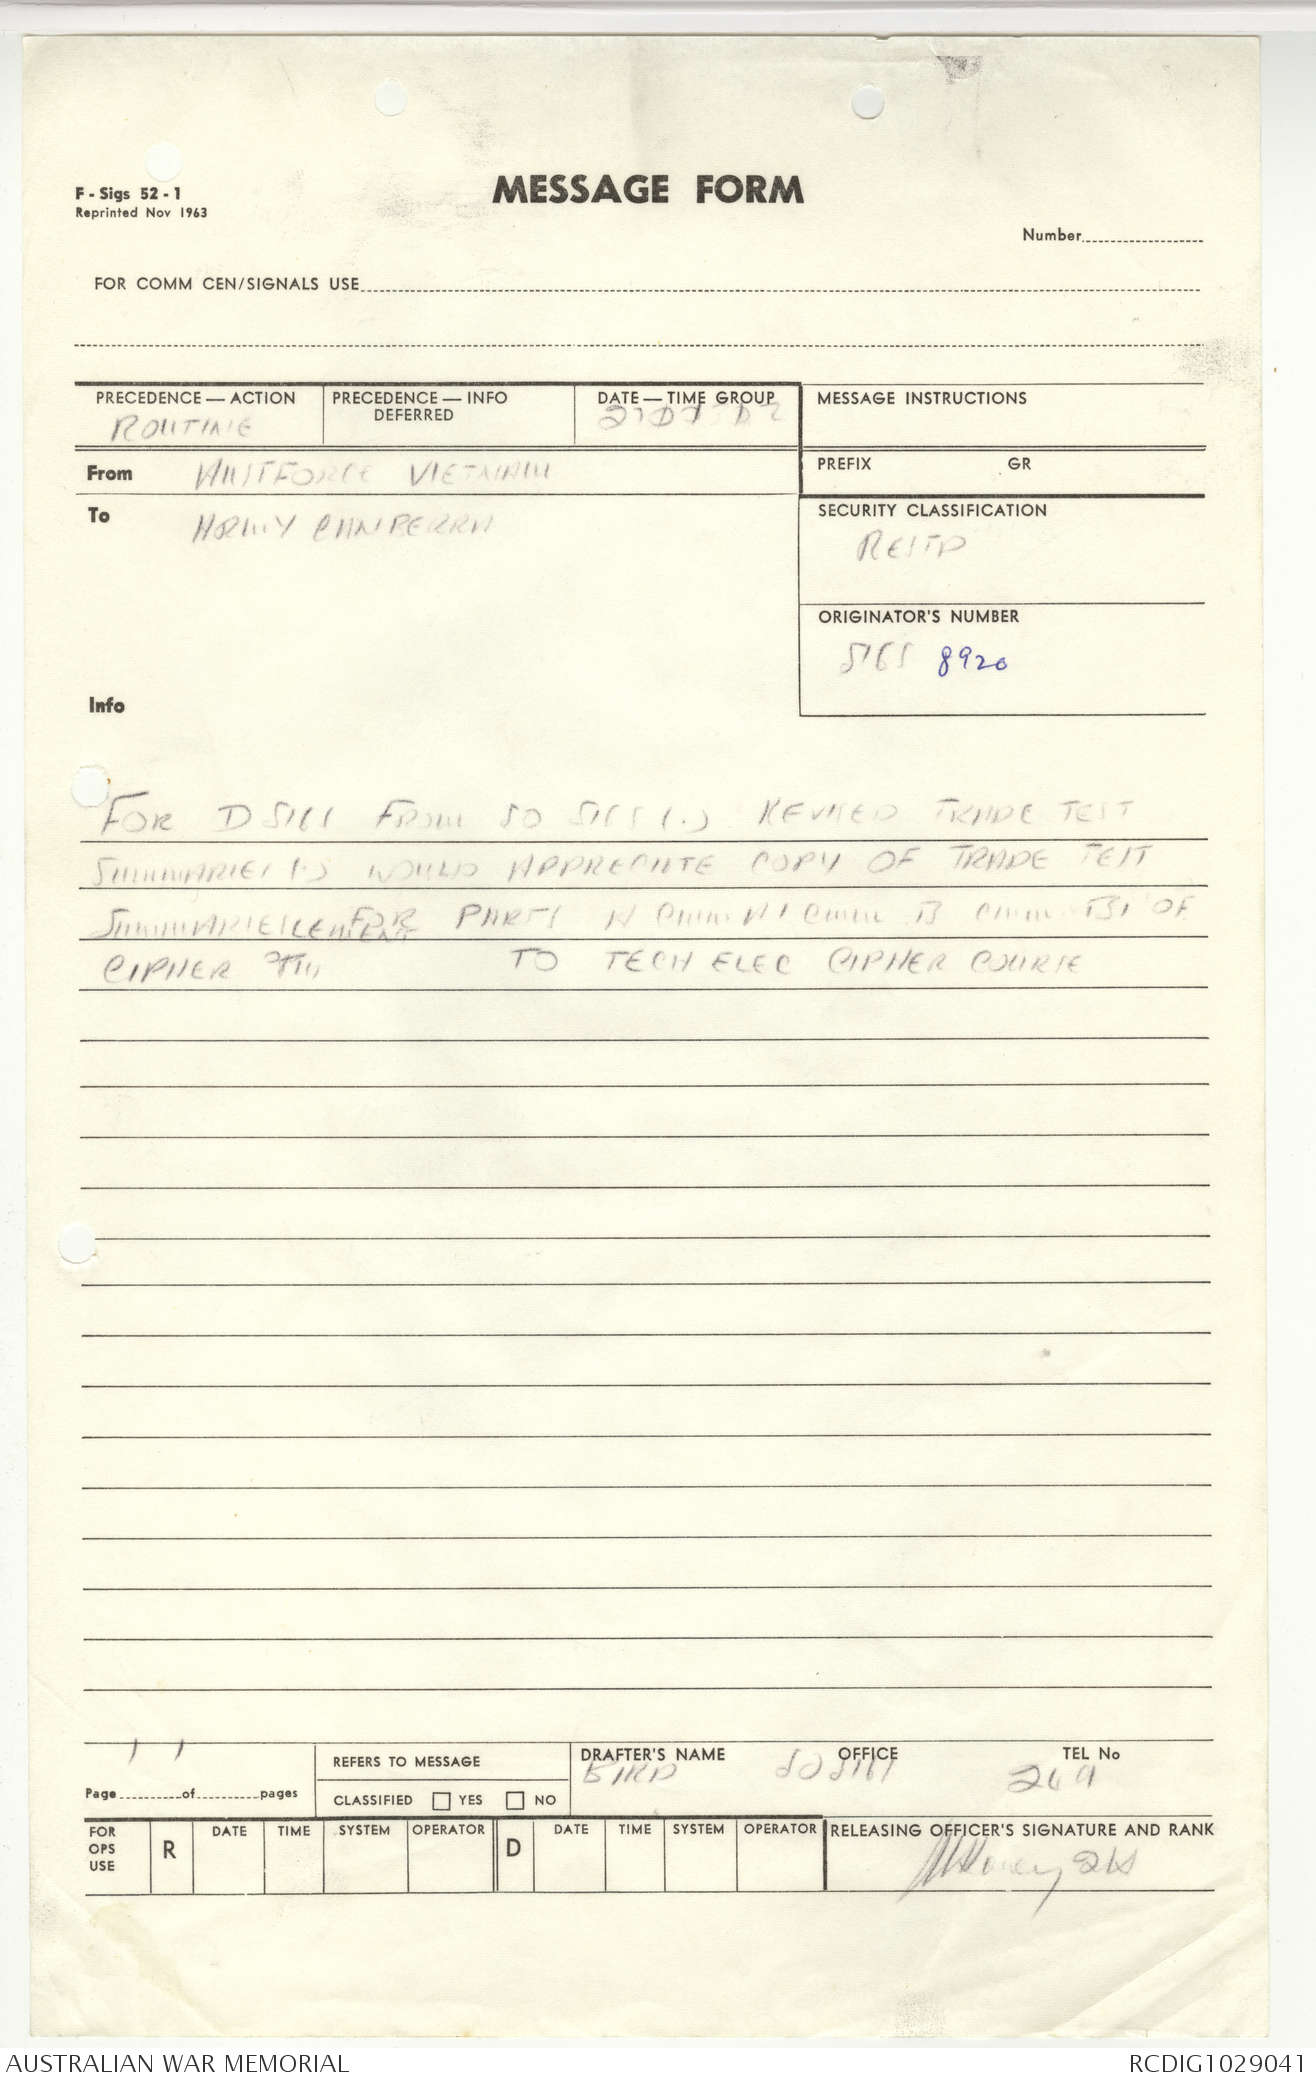 F - Sigs 52 - 1
Reprinted Nov 1963
MESSAGE FORM
Number
FOR COMM CEN/SIGNALS USE
PRECEDENCE — ACTION
ROUTINE
PRECEDENCE — INFO
DEFERRED
DATE — TIME GROUP
MESSAGE INSTRUCTIONS
From AUSTFORCE VIETNAM
PREFIX GR
To ARMY CANBERRA
SECURITY CLASSIFICATION
RESTD
ORIGINATOR'S NUMBER
SIGS 8920
Info
FOR D SIGS FROM SO SIGS (.) REVISED TRADE TEST
SUMMARIES (.) WOULD APPRECIATE COPY OF TRADE TEST
FOR PARTS A CMM A1 CMM B CMM B1 OF
CIPHER TO TECH ELEC CIPHER COURSE
1 1
Page of pages
REFERS TO MESSAGE
CLASSIFIED YES NO
DRAFTER'S NAME OFFICE TEL No
BIRD SO SIGS 269
FOR OPS USE
R DATE TIME SYSTEM OPERATOR
D DATE TIME SYSTEM OPERATOR
RELEASING OFFICER'S SIGNATURE AND RANK
AUSTRALIAN WAR MEMORIAL
RCDIG1029041